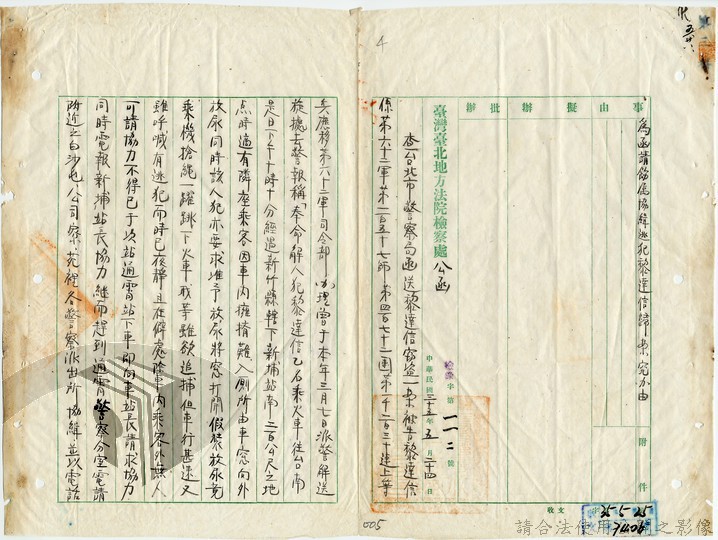 事由
擬辦
批辦
附件
為函請飭屬協緝逃犯黎達信歸案究辦由
臺灣臺北地方法院檢察處公函
字第一一二號
中華民國三十五年五月二十四日
查台北市警察局函送黎達信竊盜一案被告黎達信
係第六十二軍第一百五十七師第四百七十一團第一千二百三十連上等
兵應移第六十二軍司令部辦理當于本年三月七日派警解送
旋據去警報稱「奉命解人犯黎達信乙名乘火車往台南
是日下午十時十分經過新竹縣轄下新埔站南二百公尺之地
点時適有隣座乘客因車內擁擠難入厠所由車窓向外
放尿同時該人犯亦要求准予放尿將窓打開假裝放尿竟
乘機捨繩一躍跳下火車職等雖欲追捕但車行甚速又
雖呼喊有逃犯而時已夜靜且在僻處除車內乘客外無人
可請協力不得已于次站通霄站下車即向車站長請求協力
同時電報新埔站長協力繼而趕到通霄警察分室電請
附近之白沙屯公司寮苑裡各警察派出所協緝並以電話
收文
字
35.5.25
4
005
請合法使用
之影像